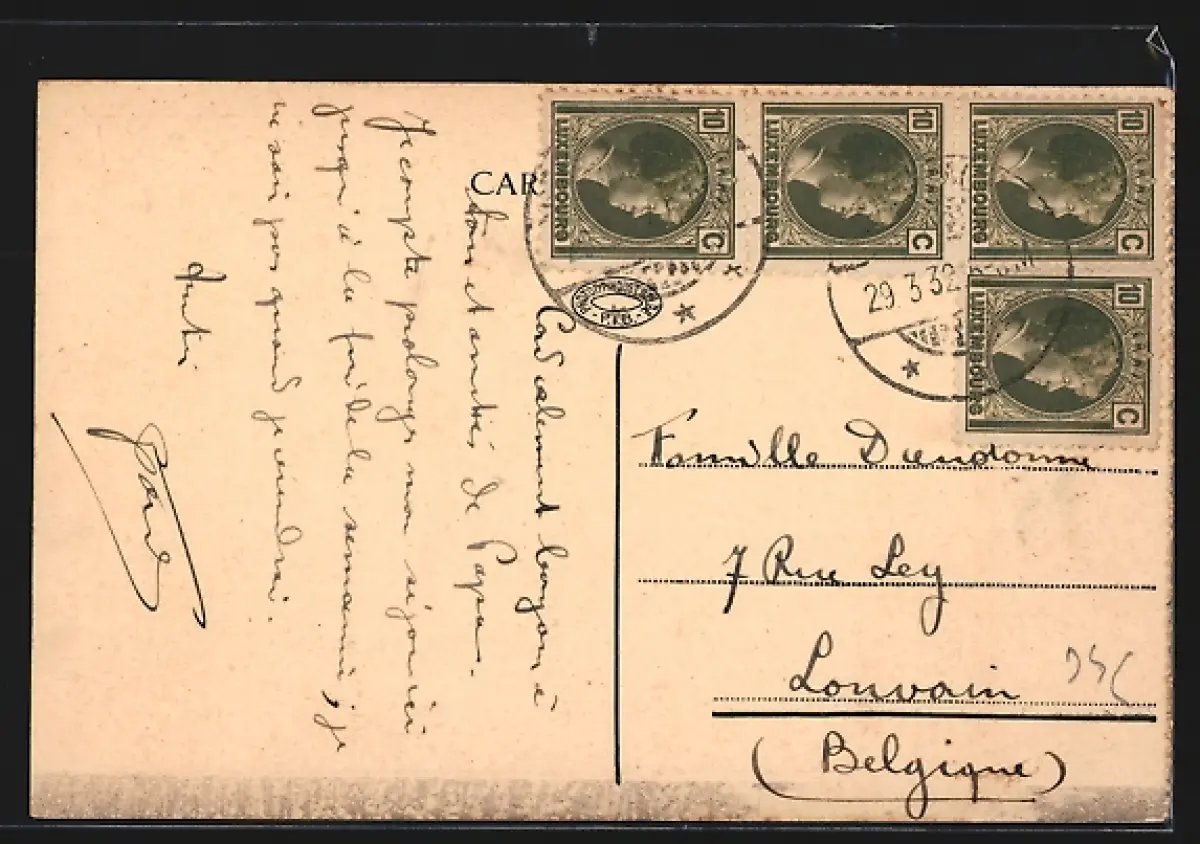 CAR
10
LUXEMBOURG
C
10
LUXEMBOURG
C
10
LUXEMBOURG
C
10
LUXEMBOURG
C
29.3.32
P.F.B.
Cordialement bonjour à
tous et amitiés de Papa.
Je compte prolonger mon séjour ici
jusqu'à la fin de la semaine, je
ne sais pas quand je reviendrai.
Famille Dieudonné
7 Rue Ley
Louvain
(Belgique)